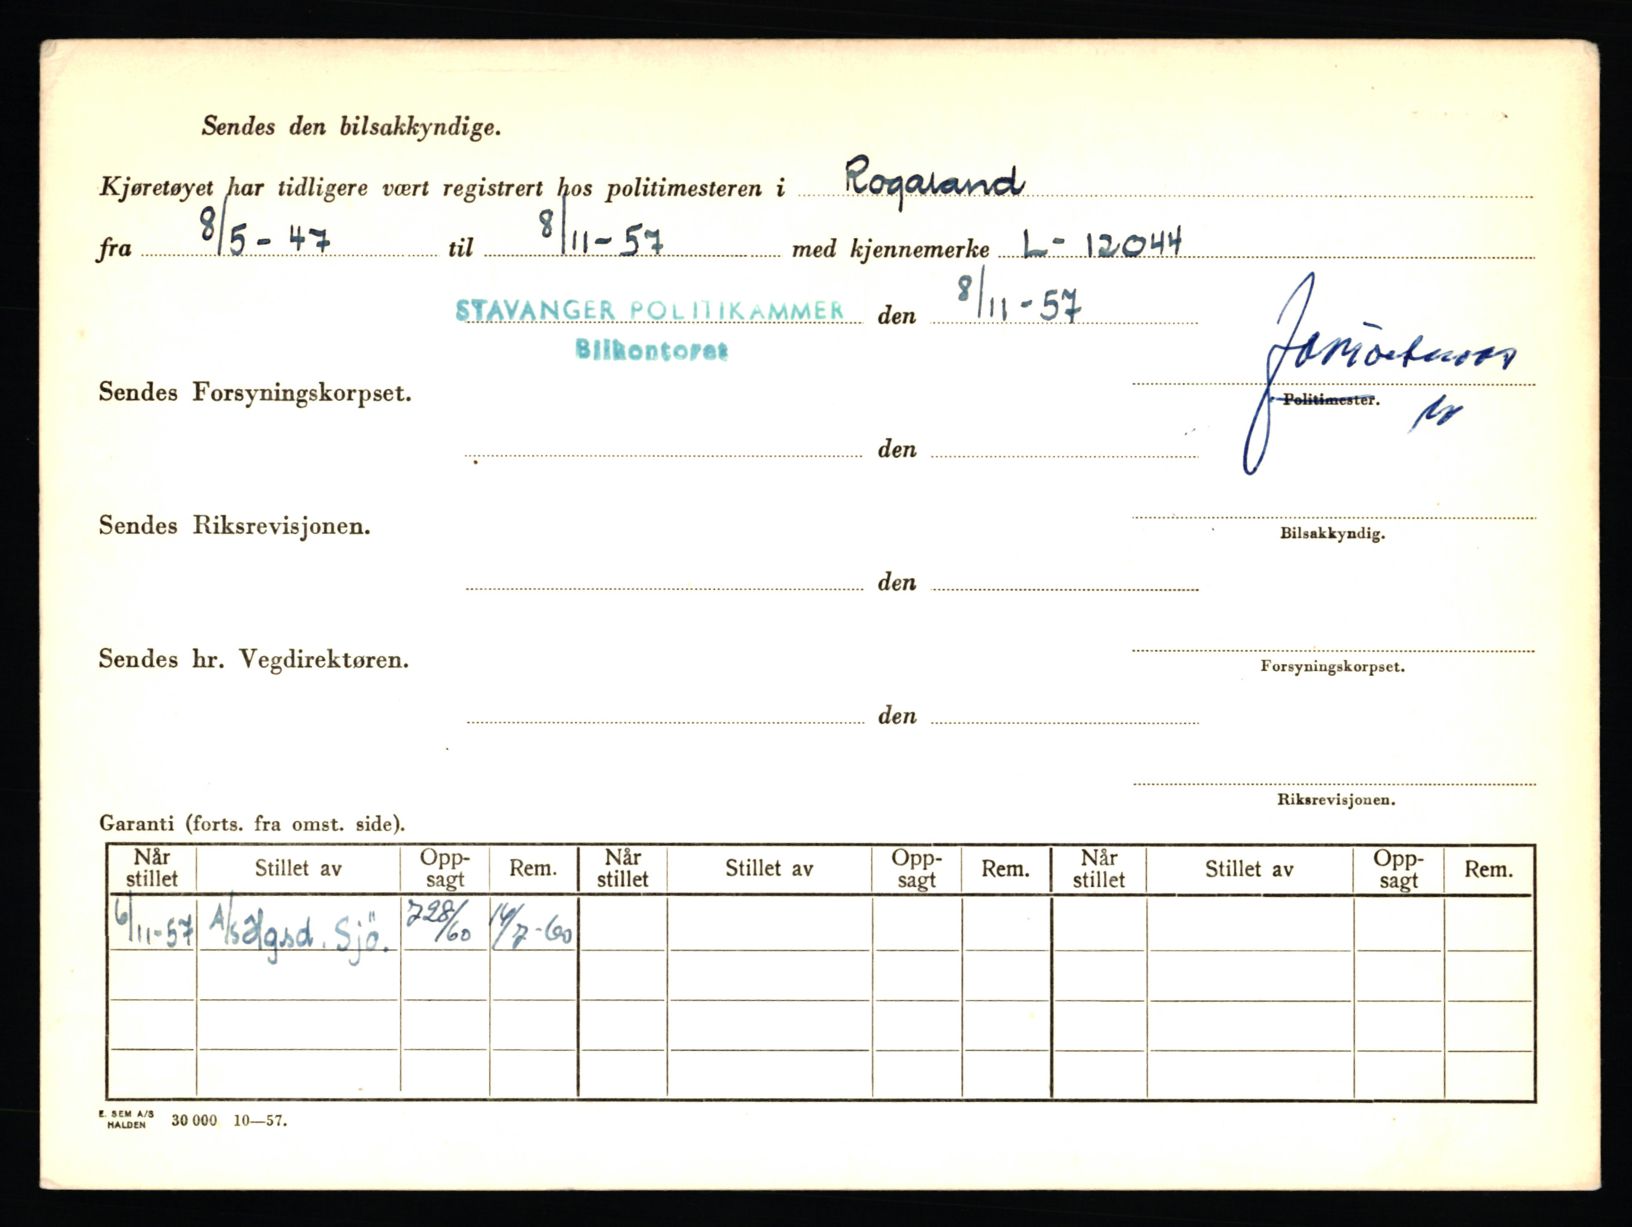 Sendes den bilsakkyndige.
Kjøretøyet har tidligere vært registrert hos politimesteren i Rogaland
fra 8/5-47 til 8/11-57 med kjennemerke L-12044
STAVANGER POLITIKAMMER den 8/11-57
Bilkontoret
Sendes Forsyningskorpset.
Politimester.
den
Sendes Riksrevisjonen.
Bilsakkyndig.
den
Sendes hr. Vegdirektøren.
Forsyningskorpset.
den
Riksrevisjonen.
Garanti (forts. fra omst. side).
Når stillet Stillet av Opp-sagt Rem. Når stillet Stillet av Opp-sagt Rem. Når stillet Stillet av Opp-sagt Rem.
6/11-57 A/s Hgsd. Sjö. 14/7-60
E. SEM A/S
HALDEN 30 000 10—57.